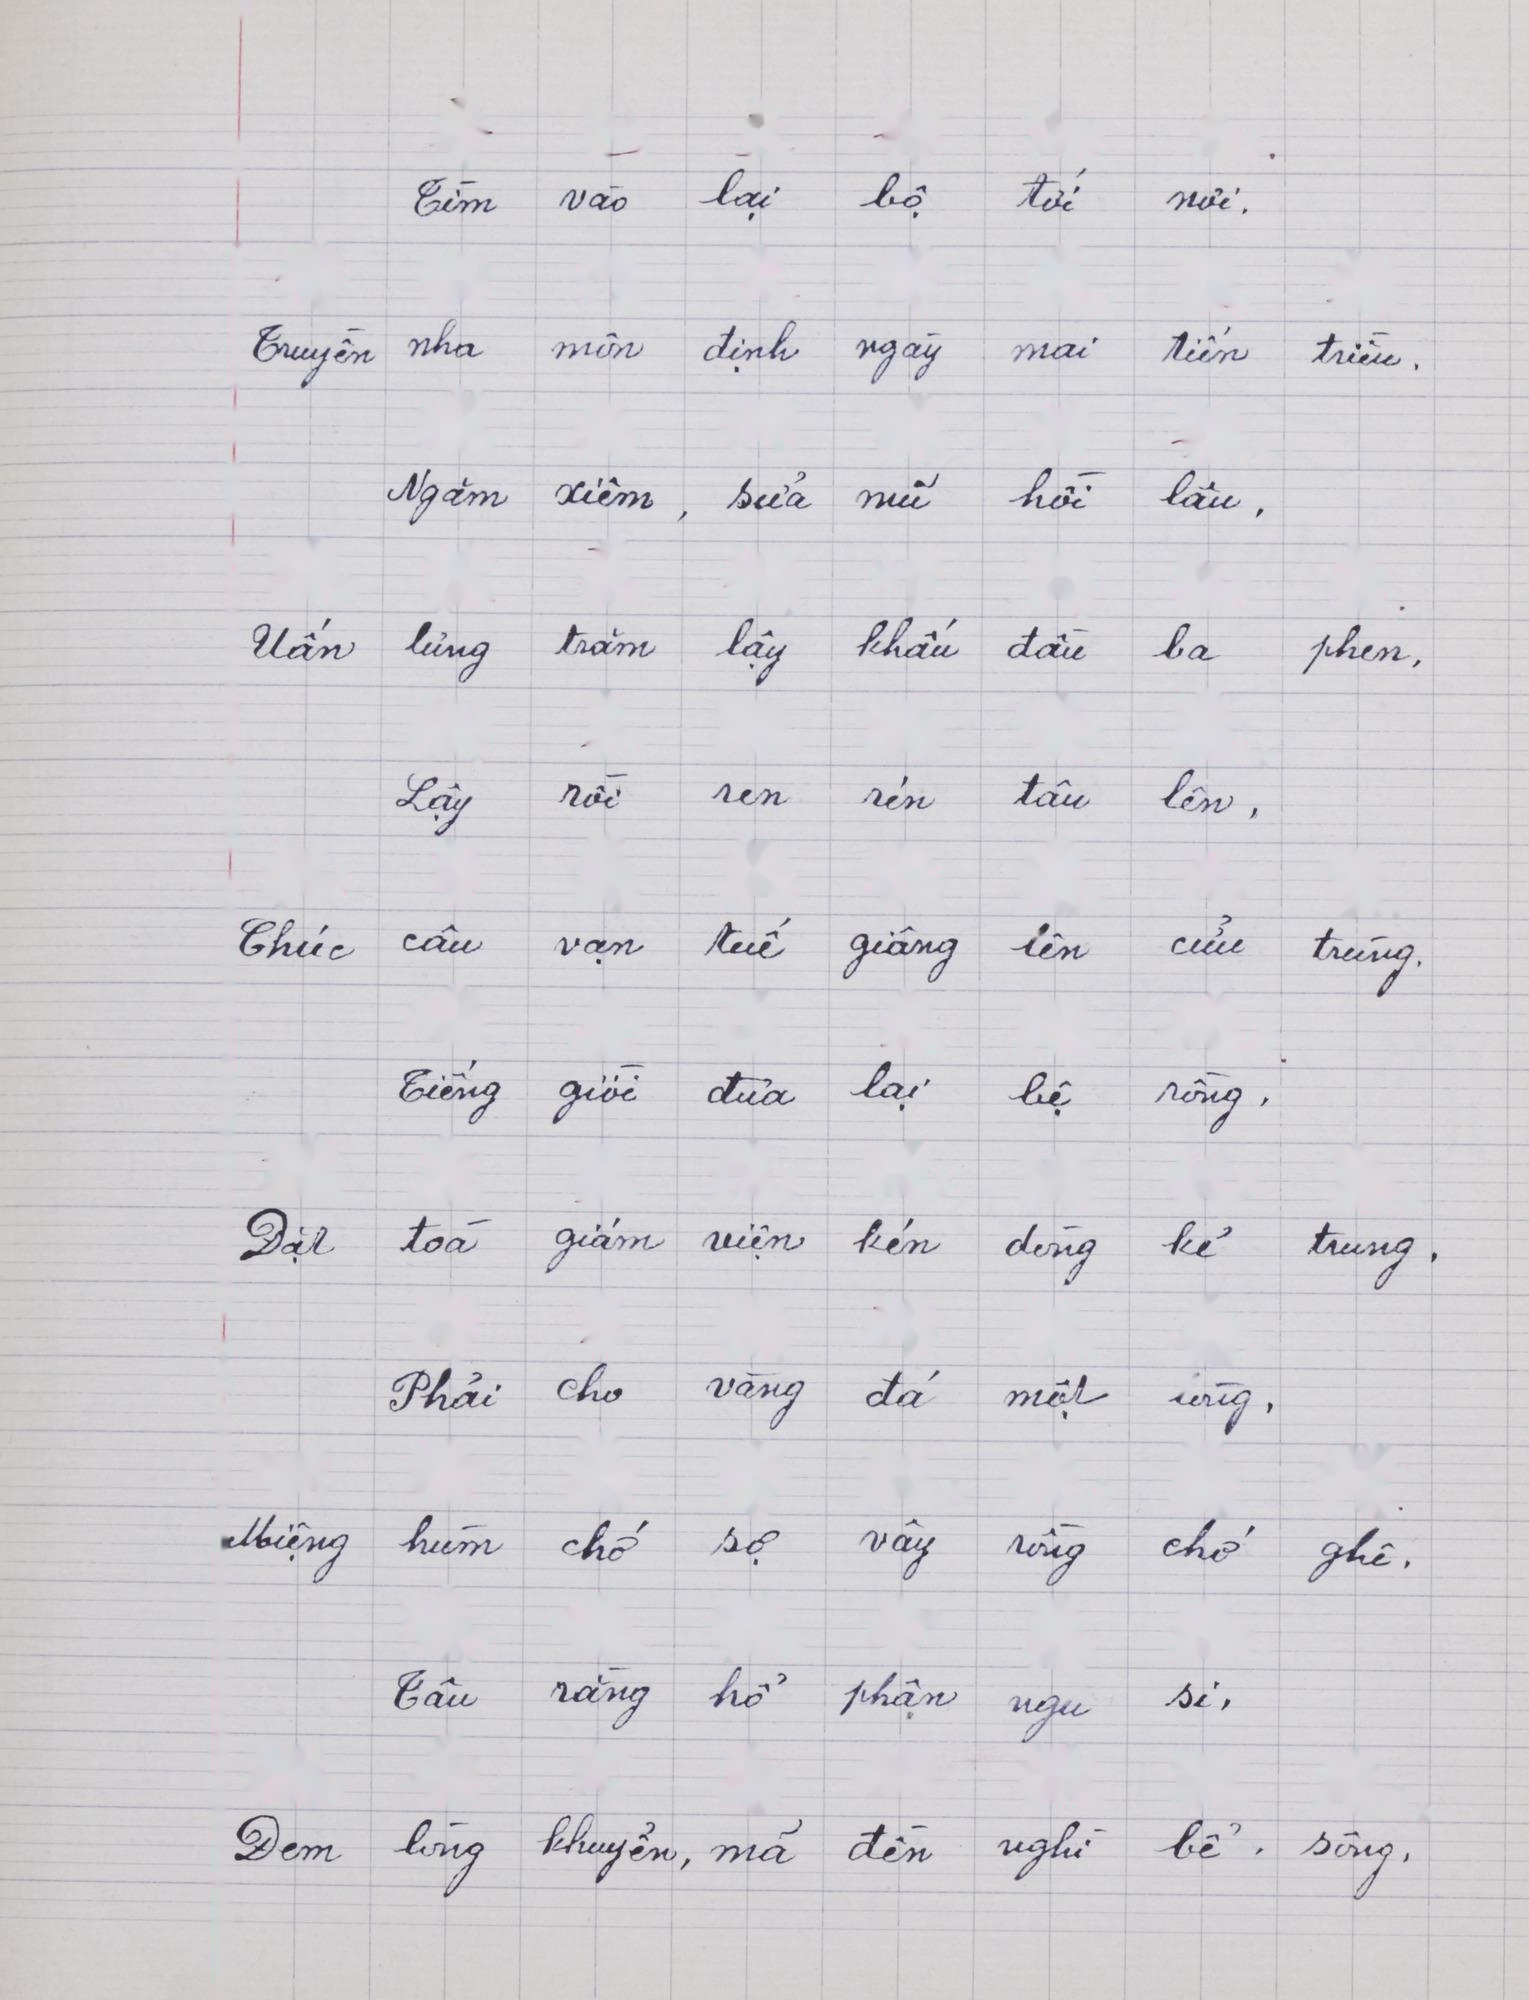 Tìm vào lại bộ tới nơi.
Truyền nha môn định ngày mai tiến triều.
Ngắm xiêm, sửa mũ hồi lâu,
Uấn lưng trăm lậy khấu đầu ba phen,
Lậy rồi ren rén tâu lên,
Chúc câu vạn tuế giâng lên cửu trùng.
Tiếng giời đưa lại bệ rồng,
Đặt toà giám viện kén dòng kẻ trung.
Phải cho vàng đá một ròng,
Miệng hùm chớ sợ vây rồng chớ ghê.
Tâu rằng hổ phận ngu si,
Đem lòng khuyển, mã đền nghì bể. sông,